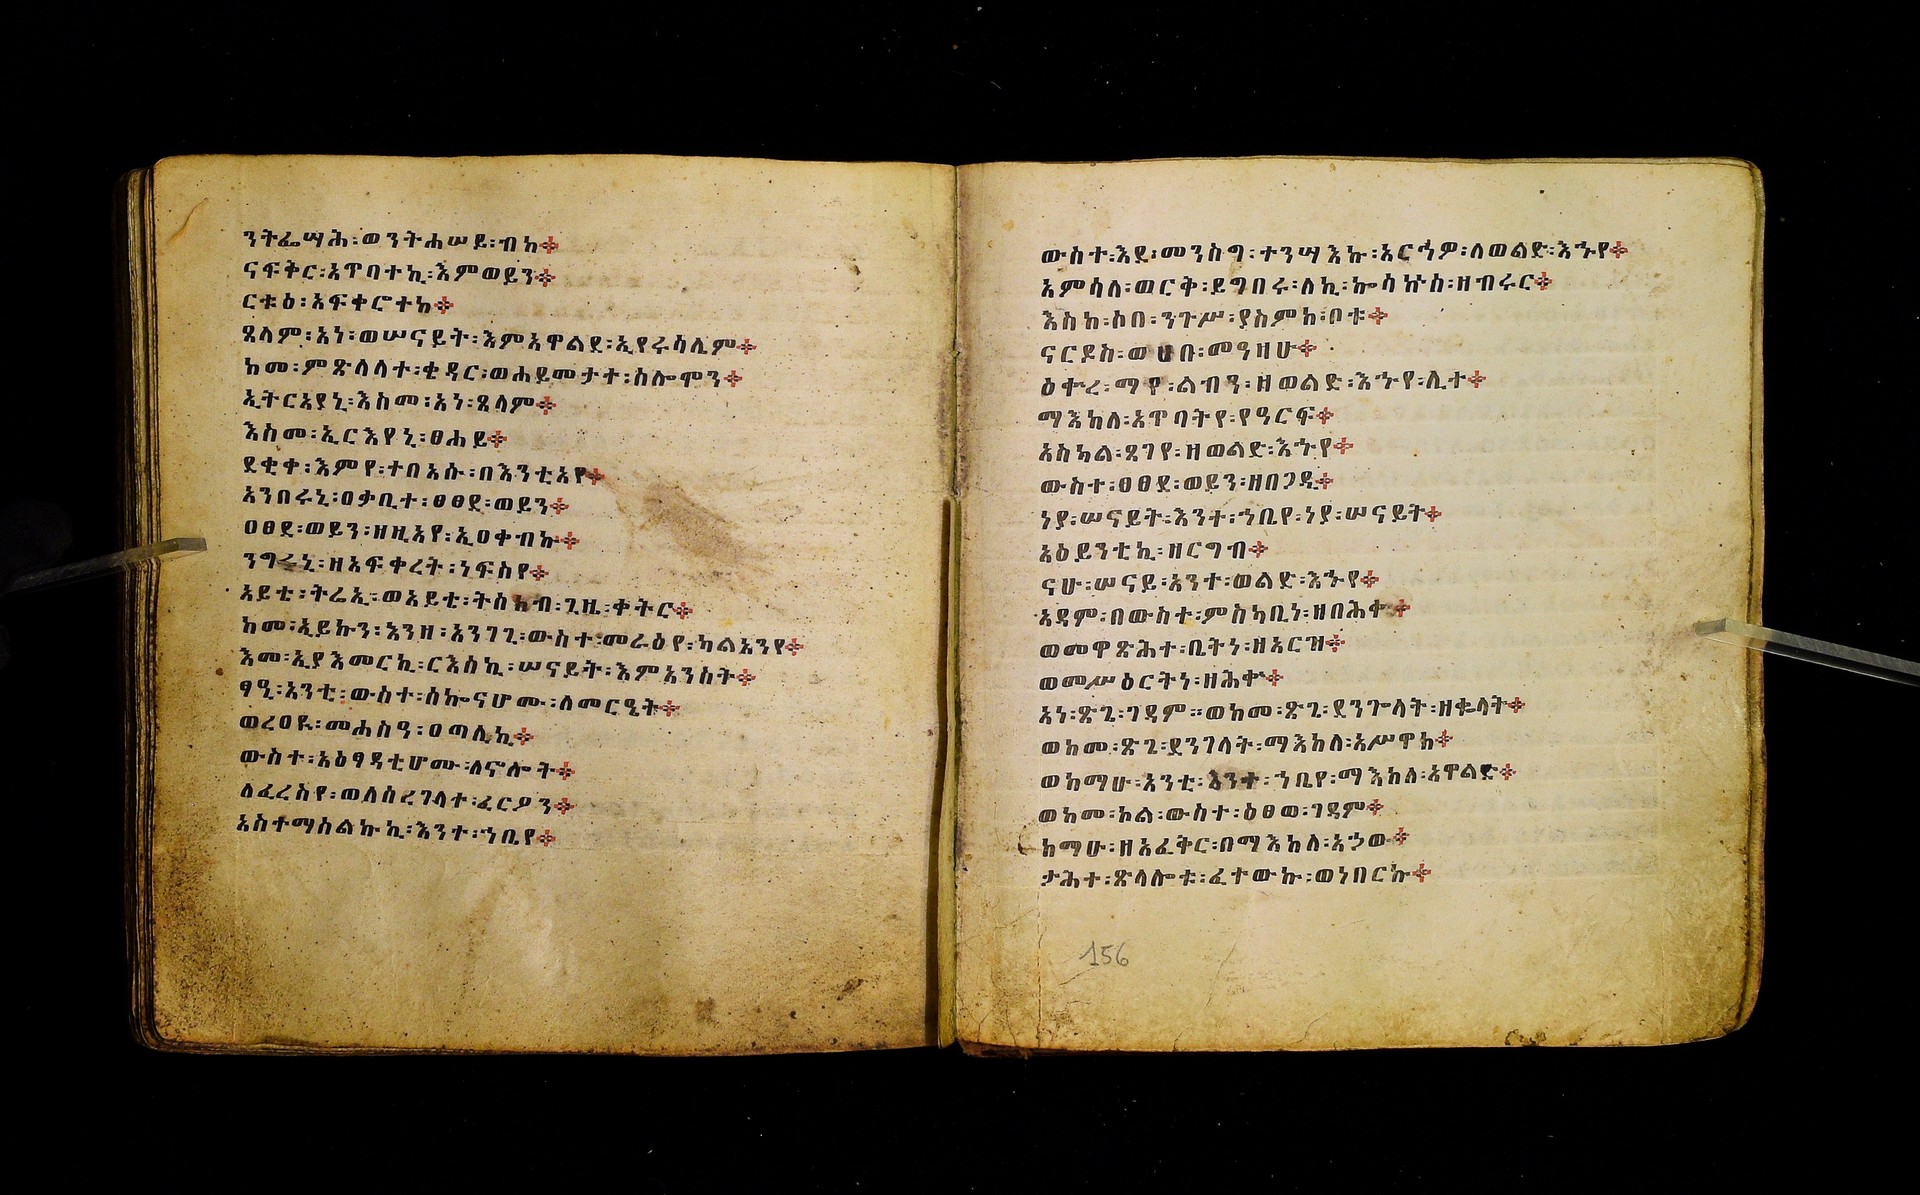 ንትፌሣሕ፡ወንትሐሠይ፡ብከ።
ናፍቅር፡አጥባተኪ፡እምወይን።
ርቱዕ፡አፍቀሮተከ።
ጸላም፡አነ፡ወሠናይት፡እምአዋልደ፡ኢየሩሳሊም።
ከመ፡ምጽላላተ፡ቄዳር፡ወሐይመታተ፡ሰሎሞን።
ኢትርአያኒ፡እስመ፡አነ፡ጸላም።
እስመ፡ኢርእየኒ፡ፀሐይ።
ደቂቀ፡እምየ፡ተበአሱ፡በእንቲአየ።
አንበሩኒ፡ዐቃቢተ፡ፀፀደ፡ወይን።
ዐፀደ፡ወይን፡ዘዚአየ፡ኢዐቀብኩ።
ንግሩኒ፡ዘአፍቀረት፡ነፍስየ።
አይቴ፡ትሬኢ፡ወአይቴ፡ትሰክብ፡ጊዜ፡ቀትር።
ከመ፡ኢይኩን፡እንዘ፡አንገጊ፡ውስተ፡መራዕየ፡ካልአንየ።
እመ፡ኢያእመርኪ፡ርእሰኪ፡ሠናይት፡እምአንስት።
ፃዒ፡አንቲ፡ውስተ፡ሰኰናሆሙ፡ለመርዔት።
ወረዐዪ፡መሐስዓ፡ዐጣሊኪ።
ውስተ፡አዕፃዳቲሆሙ፡ለኖሎት።
ለፈረስየ፡ወለሰረገላተ፡ፈርዖን።
አስተማሰልኩኪ፡እንተ፡ኀቤየ።
ውስተ፡እደ፡መንስግ፡ተንሣእኩ፡አርኅዎ፡ለወልድ፡እኁየ።
አምሳለ፡ወርቅ፡ይግበሩ፡ለኪ፡ኰሳኵስ፡ዘብሩር።
እስከ፡ሶበ፡ንጉሥ፡ያሰምክ፡ቦቱ።
ናርዶስ፡ወሀቡ፡መዓዛሁ።
ዕቍረ፡ማየ፡ልብን፡ዘወልድ፡እኁየ፡ሊተ።
ማእከለ፡አጥባትየ፡የዓርፍ።
አስካል፡ጸገየ፡ዘወልድ፡እኁየ።
ውስተ፡ፀፀደ፡ወይን፡ዘበጋዲ።
ነያ፡ሠናይት፡እንተ፡ኀቤየ፡ነያ፡ሠናይት።
አዕይንቲኪ፡ዘርግብ።
ናሁ፡ሠናይ፡አንተ፡ወልድ፡እኁየ።
አዳም፡በውስተ፡ምስካቢነ፡ዘበሕቀ።
ወመዋጽሕተ፡ቤትነ፡ዘአርዝ።
ወመሥዕርትነ፡ዘሕቀ።
አነ፡ጽጌ፡ገዳም።ወከመ፡ጽጌ፡ደንጐላት፡ዘቈላት።
ወከመ፡ጽጌ፡ደንገላት፡ማእከለ፡አሥዋክ።
ወከማሁ፡አንቲ፡እንተ፡ኀቤየ፡ማእከለ፡አዋልድ።
ወከመ፡ኮል፡ውስተ፡ዕፀወ፡ገዳም።
ከማሁ፡ዘአፈቅር፡በማእከለ፡አኃው።
ታሕተ፡ጽላሎቱ፡ፈተውኩ፡ወነበርኩ።
156